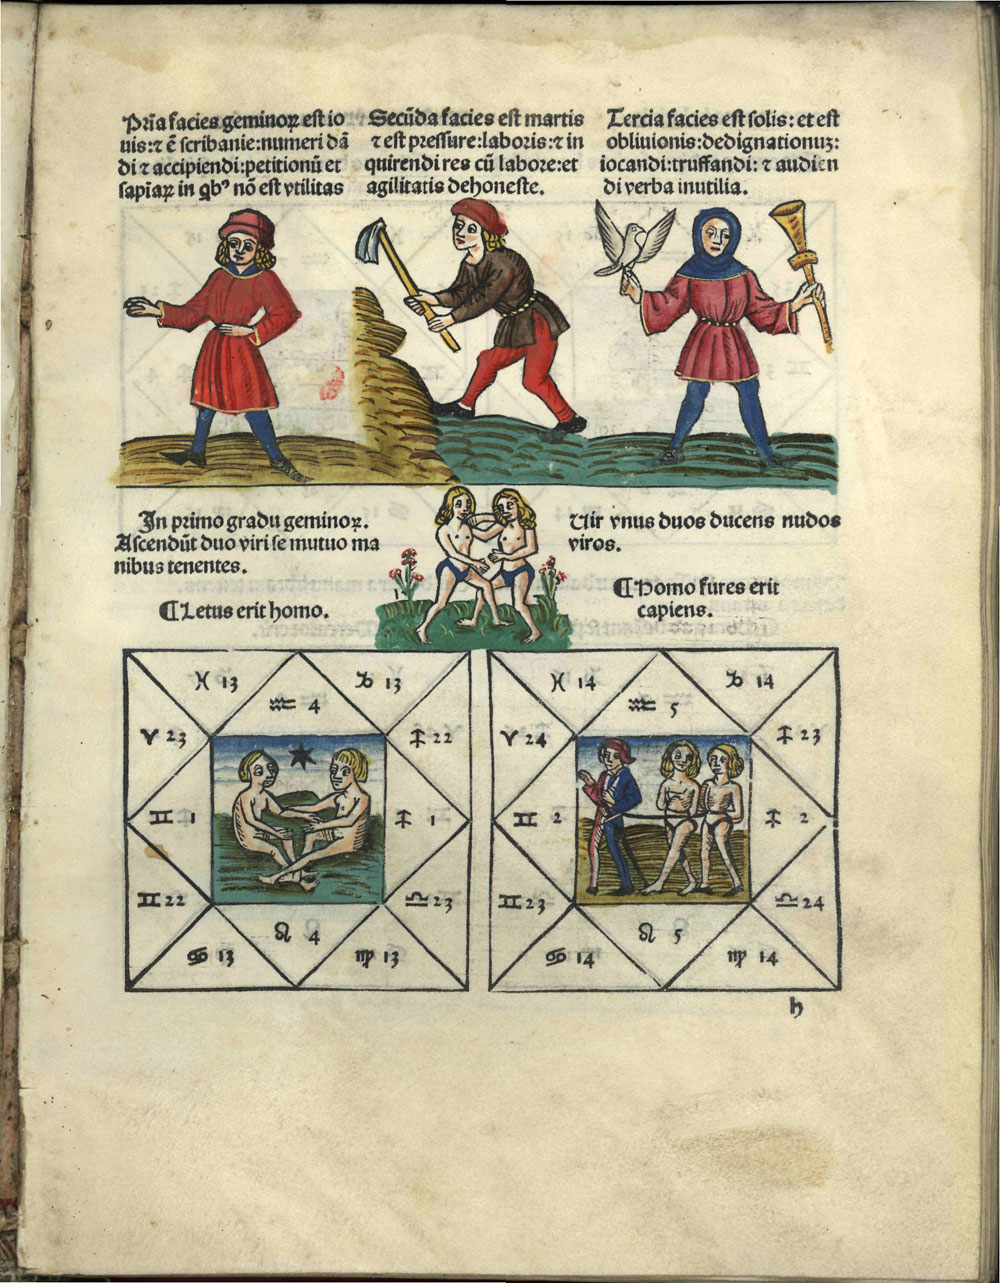 Pri̅a facies geminoꝝ est io
uis: ⁊ e̅ scribanie: numeri da̅
di ⁊ accipiendi: petitionu̅ et
sapiaꝝ in qbꝰ no̅ est vtilitas
Secu̅da facies est martis
⁊ est pressure: laboris: ⁊ in
quirendi res cu̅ labore: et
agilitatis dehoneste.
Tercia facies est solis: et est
obliuionis: dedignationuʒ:
iocandi: truffandi: ⁊ audien
di verba inutilia.
In primo gradu geminoꝝ.
Ascendu̅t duo viri se mutuo ma
nibus tenentes.
¶ Letus erit homo.
Uir vnus duos ducens nudos
viros.
¶ Homo fures erit
capiens.
♓ 13 ♑ 13
♒ 4
♈ 23 ♐ 22
♊ 1 ♐ 1
♊ 22 ♎ 23
♌ 4
♋ 13 ♍ 13
♓ 14 ♑ 14
♒ 5
♈ 24 ♐ 23
♊ 2 ♐ 2
♊ 23 ♎ 24
♌ 5
♋ 14 ♍ 14
h